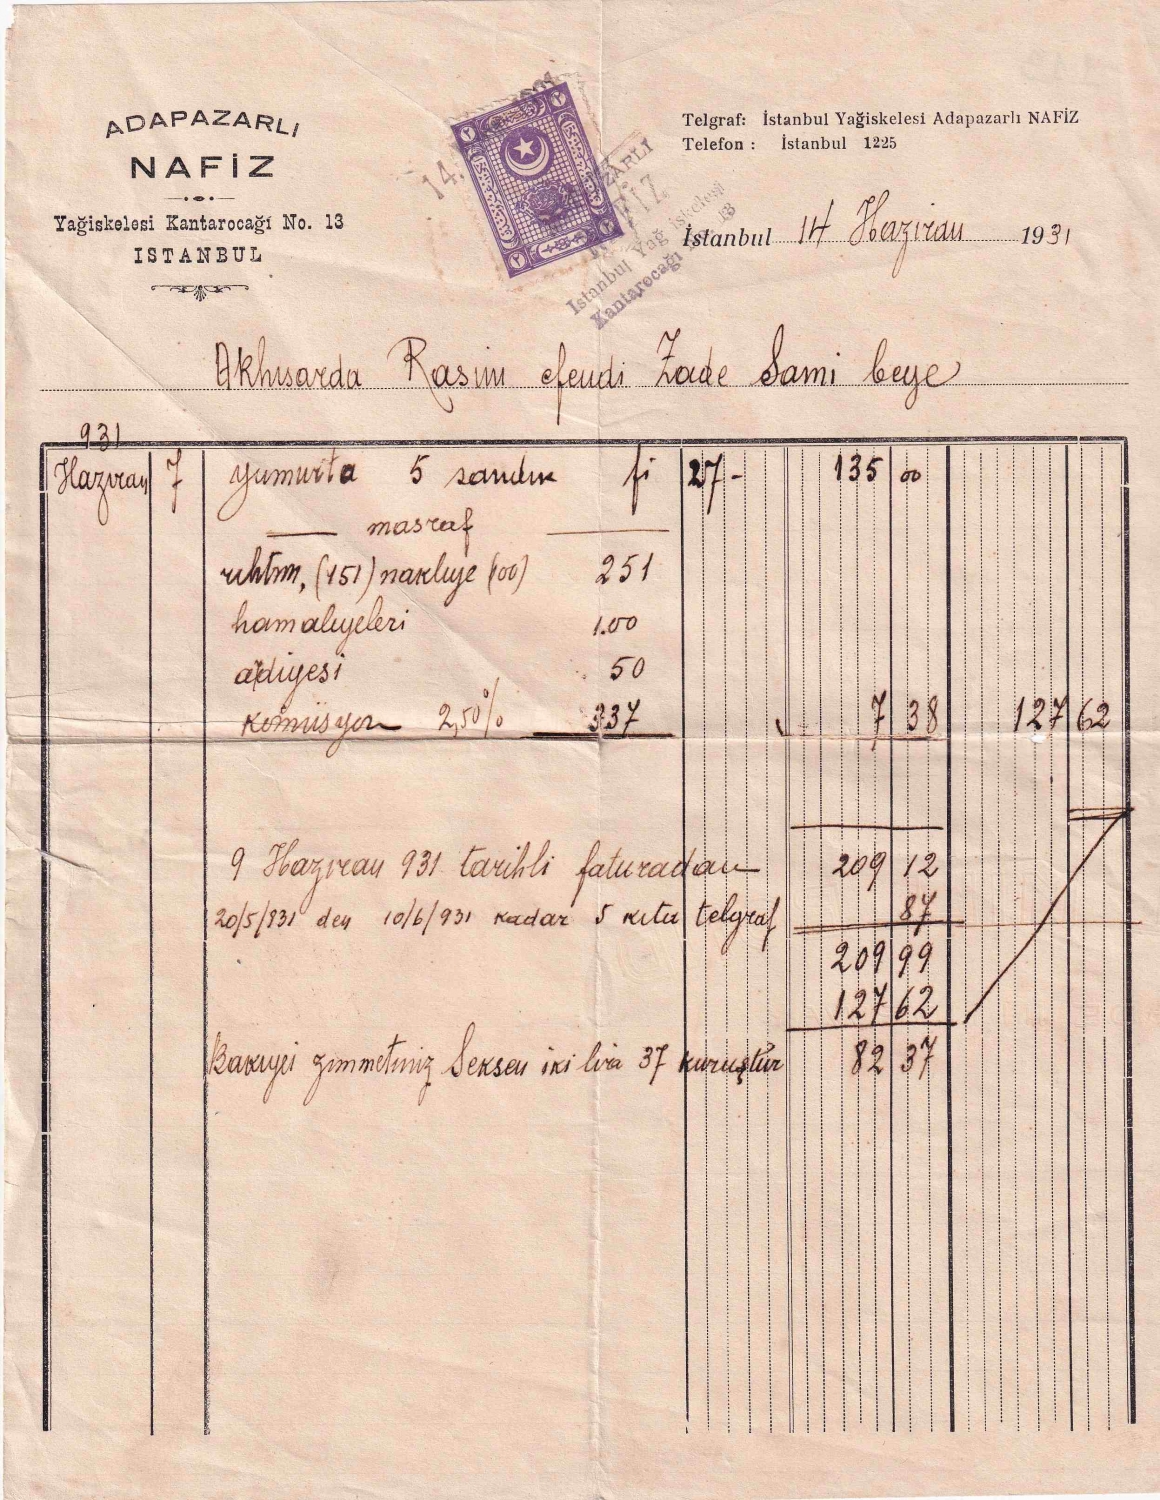 ADAPAZARLI
NAFİZ
Yağiskelesi Kantarocağı No. 13
ISTANBUL
Telgraf: İstanbul Yağiskelesi Adapazarlı NAFİZ
Telefon : İstanbul 1225
14.
ADAPAZARLI
NAFİZ
Istanbul Yağ iskelesi
Kantarocağı No 13
İstanbul 14 Haziran 1931
Akhisarda Rasim efendi Zade Sami beye
931
Haziran 7 yumurta 5 sandık fi 27- 135 00
masraf
rıhtım, (151) nakliye (100) 251
hamaliyeleri 1.00
ardiyesi 50
komüsyon 2,50% 337 7 38 127 62
9 Haziran 931 tarihli faturadan 209 12
20/5/931 den 10/6/931 kadar 5 kıta telgraf 87
209 99
127 62
Bakiyei zimmetiniz Seksen iki lira 37 kuruştur 82 37